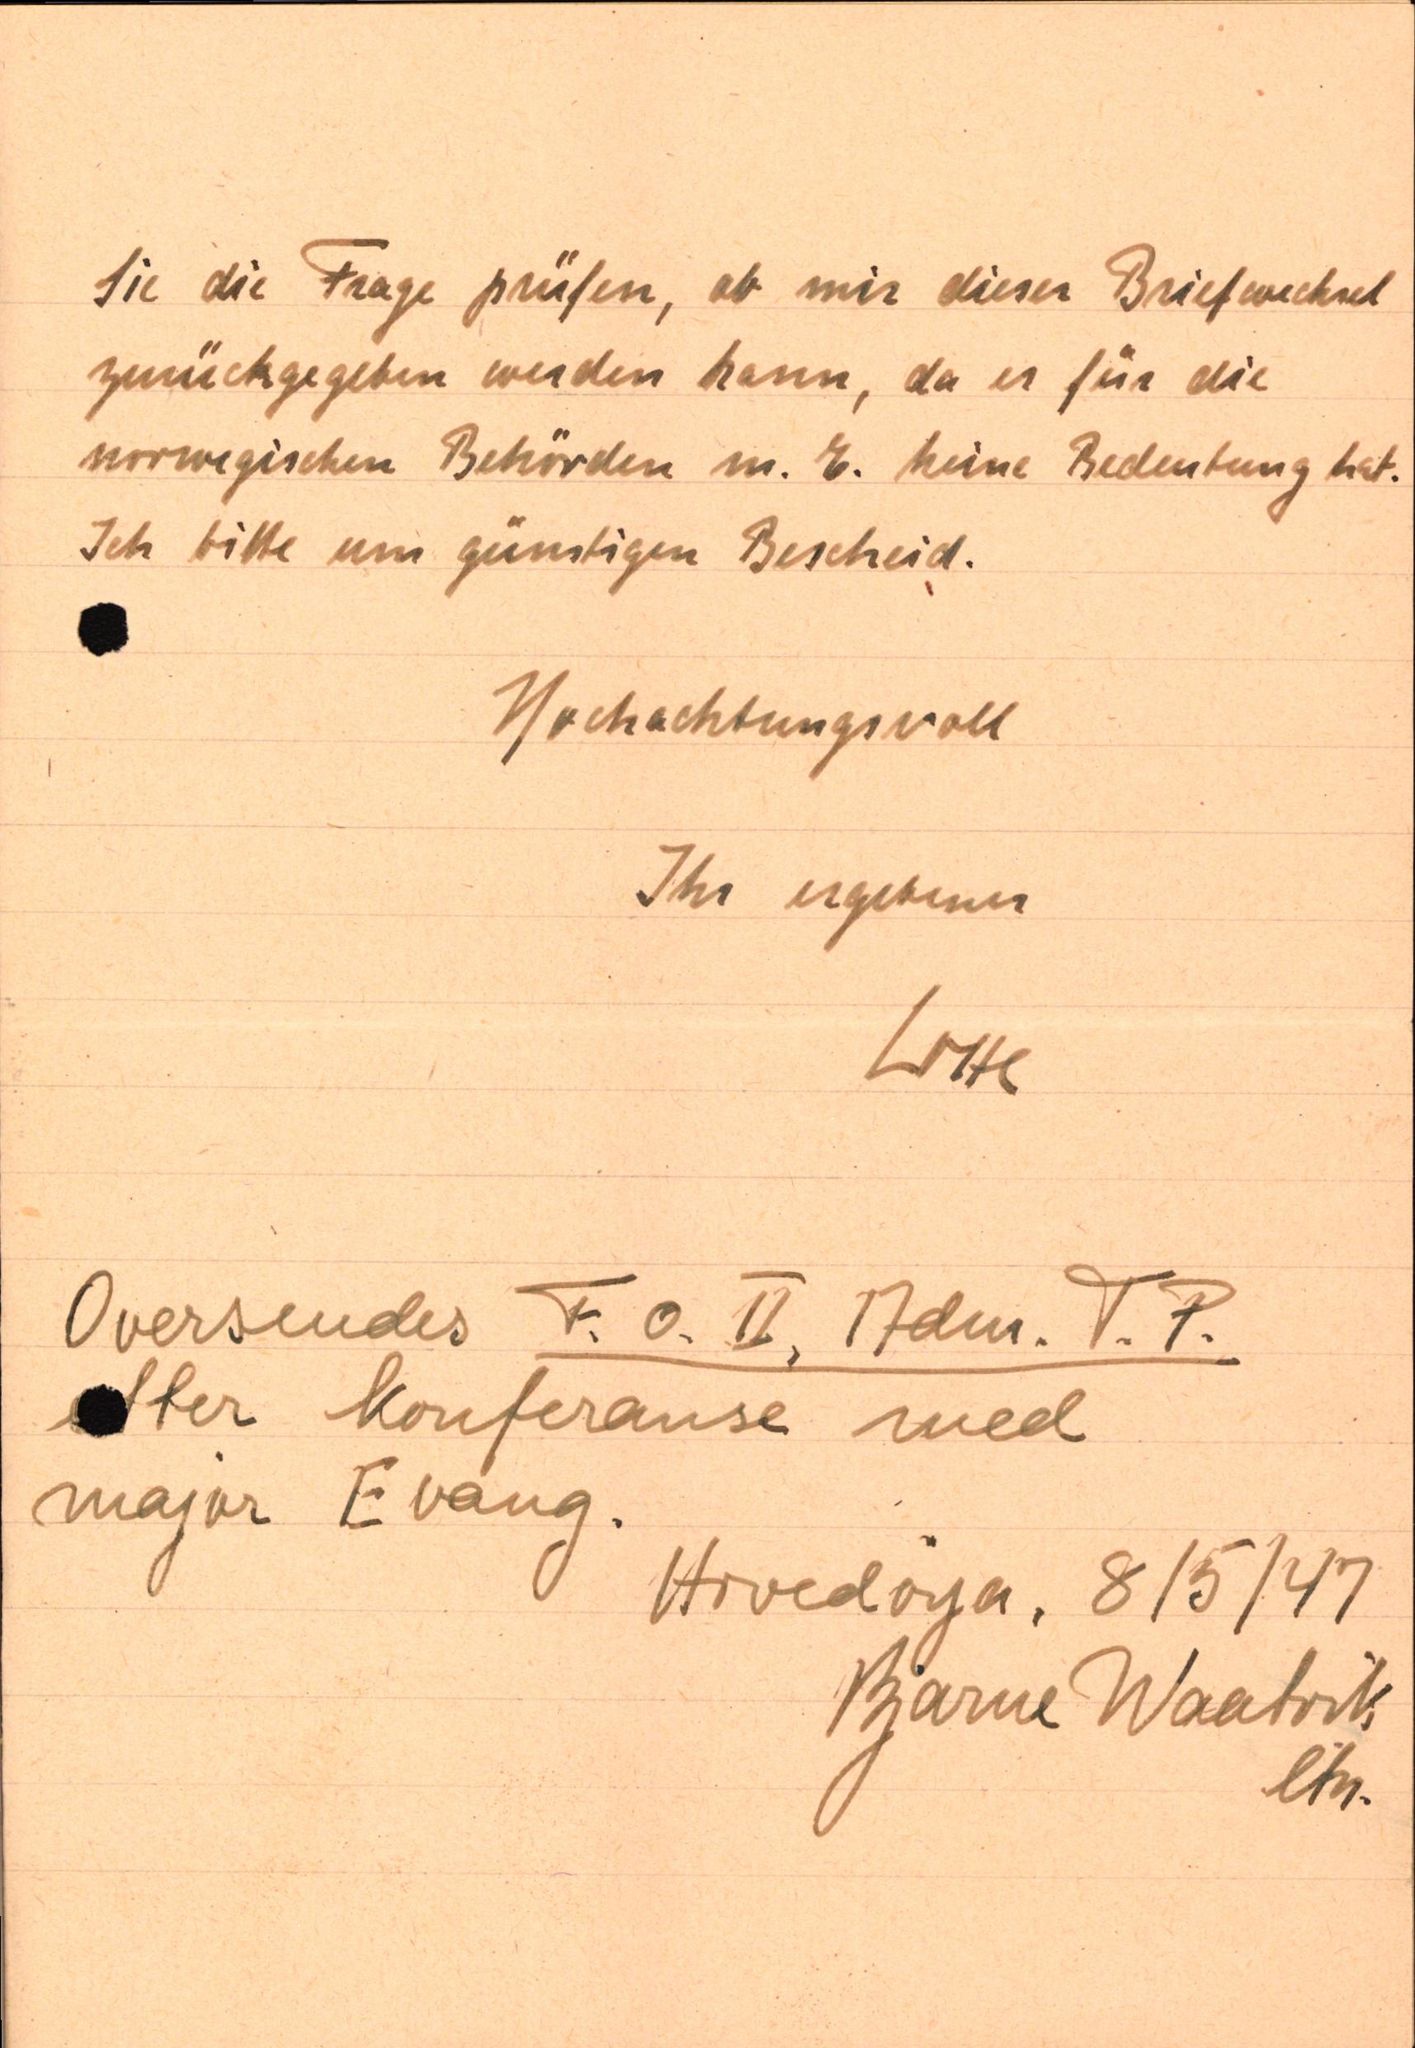 Sie die Frage prüfen, ob mir dieser Briefwechsel
zurückgegeben werden kann, da er für die
norwegischen Behörden m. E. keine Bedeutung hat.
Ich bitte um günstigen Bescheid.
Hochachtungsvoll
Ihr ergebener
Lotte
Oversendes F. O. II, Adm. T. P.
etter konferanse med
major Evang.
Hovedöya, 8/5/47
Bjarne
ltn.